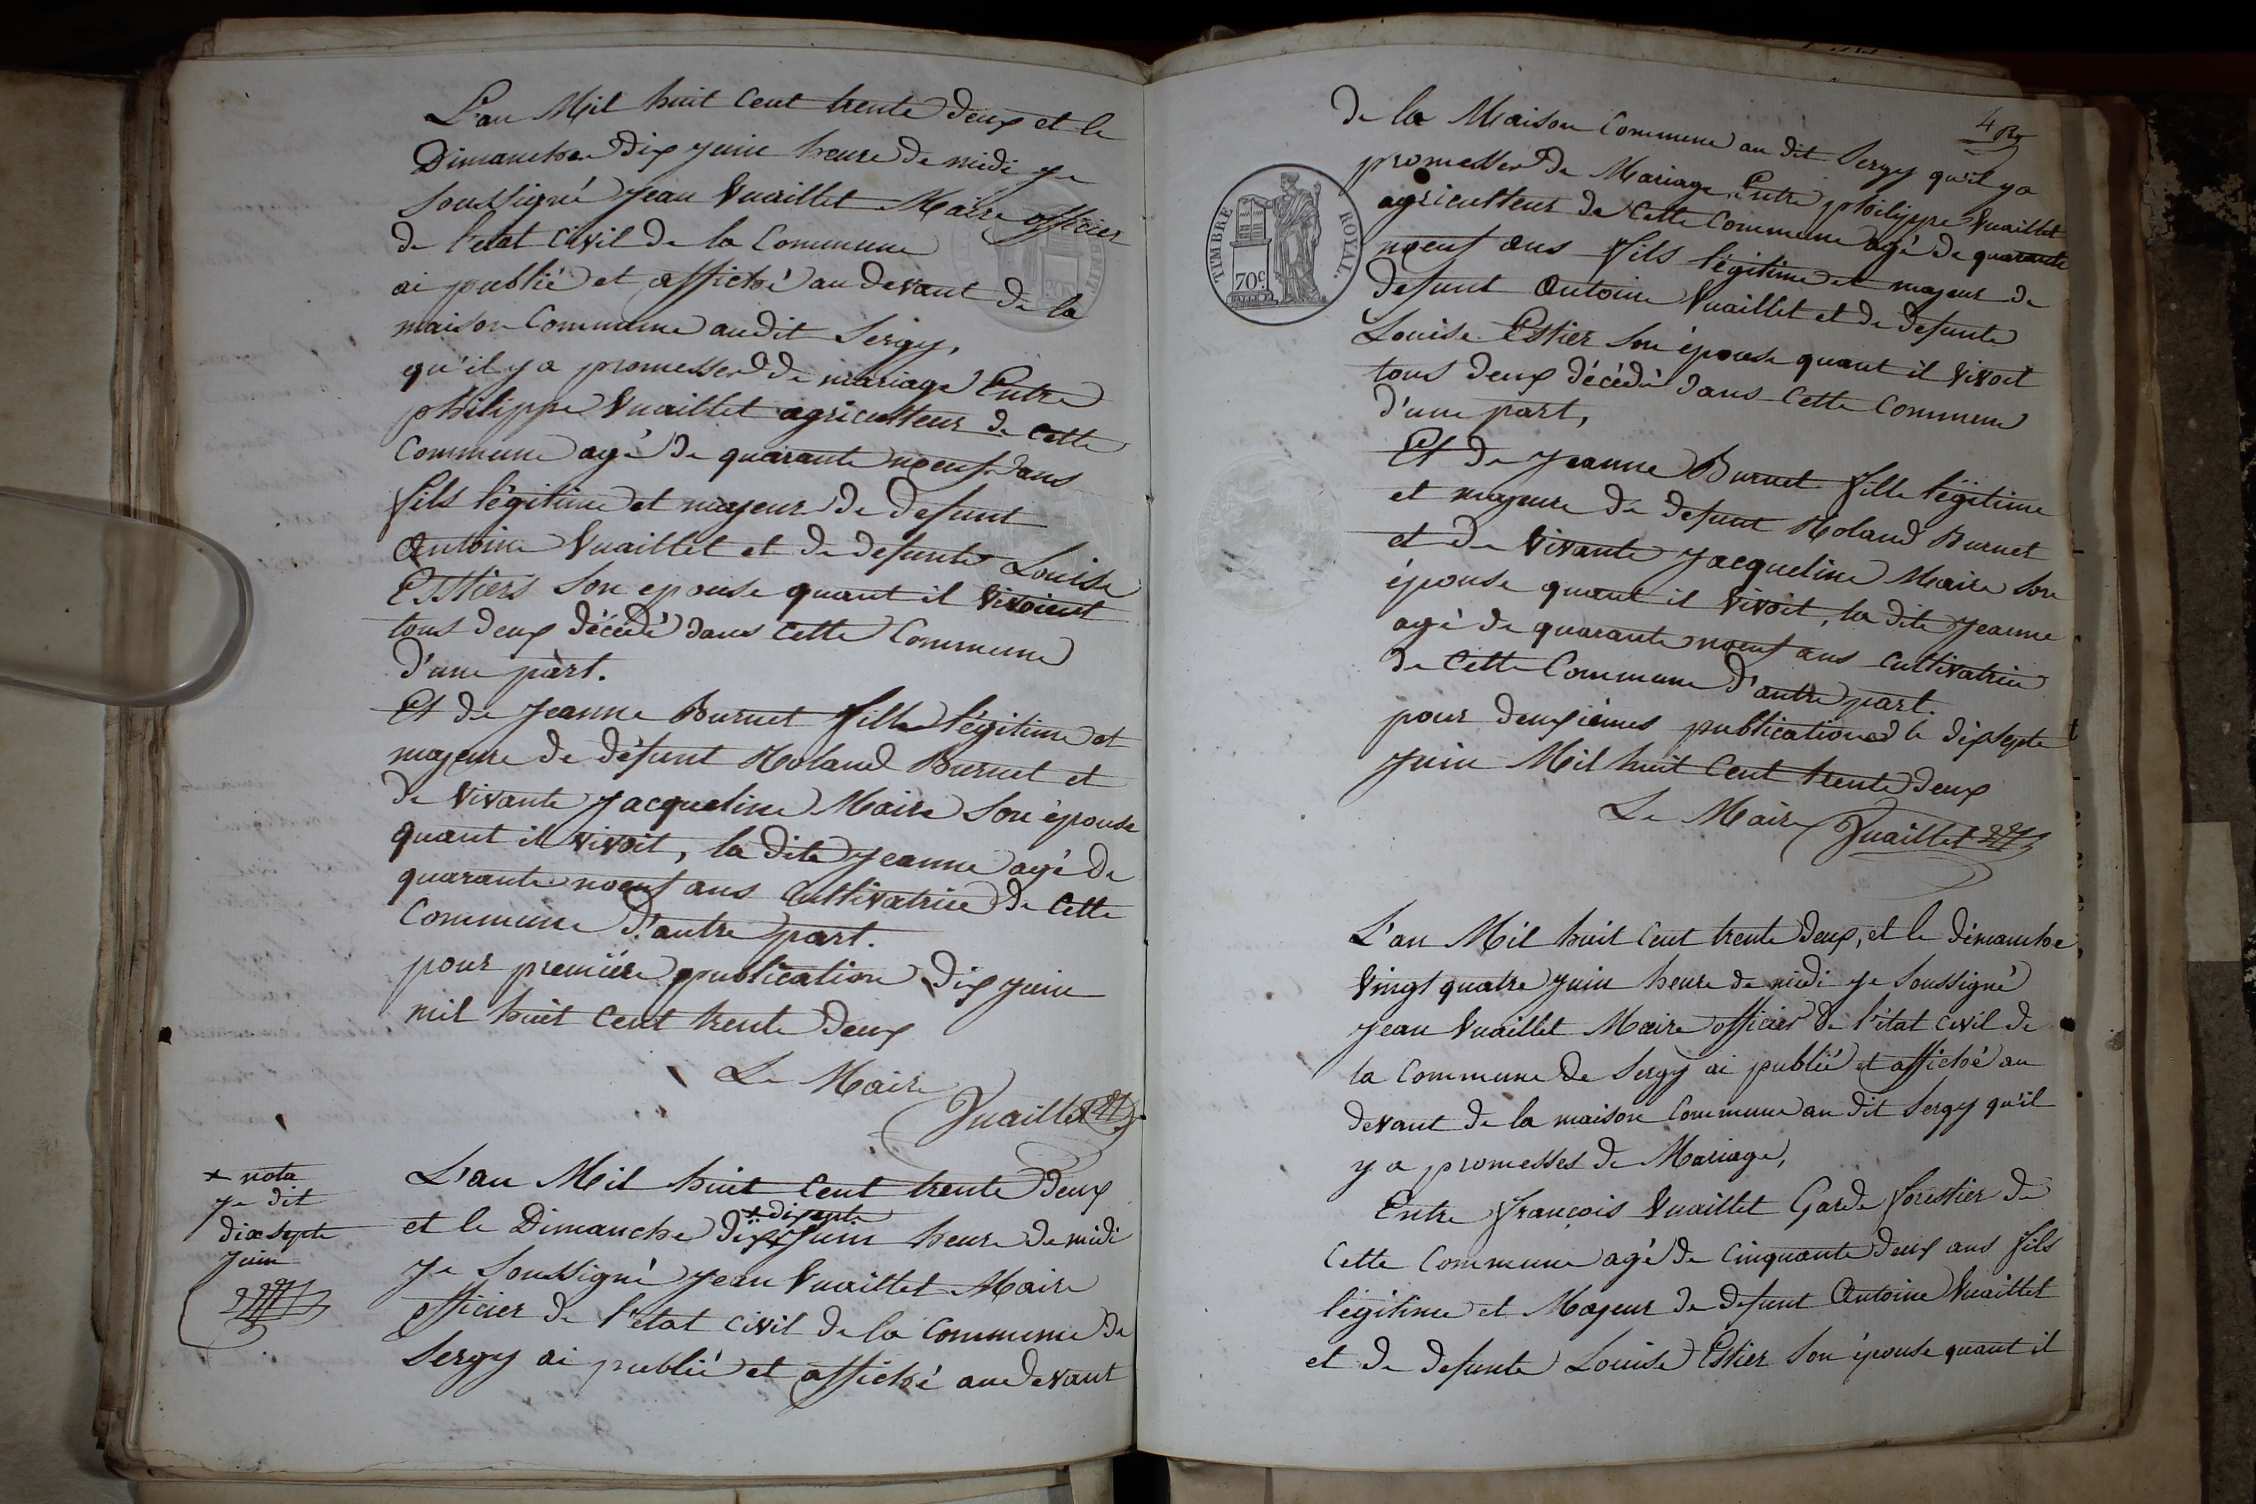 L'an Mil huit Cent trente deux et le
Dimanche dix juin heure de midi je
soussigné Jean Vuaillet Maire officier
de l'etat Civil de la Commune
ai publié et affiché au devant de la
maison Commune audit Sergy,
qu'il y a promesses de mariage Entre
philippe Vuaillet agriculteur de cette
Commune agé de quarante noeuf ans
fils légitime et majeur de defunt
Antoine Vuaillet et de defunte Louise
Esttiers son epouse quant il vivoient
tous deux décédé dans cette Commune
d'une part.
Et de Jeanne Burnet fille légitime et
majeure de défunt Roland Burnet et
de vivante Jacqueline Maire son épouse
quant il vivoit, la dite Jeanne agé de
quarante noeuf ans Cultivatrice de cette
Commune d'autre part.
pour premiére publication dix juin
mil huit Cent trente deux
Le Maire
Vuaillet
+ nota
je dit
dix septe
juin
L'an Mil huit Cent trente deux
+ dix septe
et le Dimanche dix juin heure de midi
je soussigné Jean Vuaillet Maire
officier de l'etat civil de la Commune de
Sergy ai publié et affiché au devant
4
de la Maison Commune au dit Sergy qu'il y a
promesses de Mariage Entre philippe Vuaillet
agriculteur de cette Commune agé de quarante
noeuf ans fils légitime et majeur de
defunt Antoine Vuaillet et de defunte
Louise Estier son épouse quant il vivoit
tous deux décédé dans cette Commune
d'une part,
Et de Jeanne Burnet fille légitime
et majeure de defunt Roland Burnet
et de vivante Jacqueline Maire son
épouse quant il vivoit, la dite Jeanne
agé de quarante noeuf ans cultivatrice
de cette Commune d'autre part.
pour deuxiémes publication le dix septe
juin Mil huit Cent trente deux
Le Maire Vuaillet
TIMBRE ROYAL.
70c.
L'an Mil huit Cent trente deux, et le dimanche
vingt quatre juin heure de midi je soussigné
Jean Vuaillet Maire officier de l'état civil de
la Commune de Sergy ai publié et affiché au
devant de la maison Commune au dit Sergy qu'il
y a promesses de Mariage,
Entre françois Vuaillet Garde forestier de
Cette Commune agé de Cinquante deux ans fils
légitime et Majeur de defunt Antoine Vuaillet
et de defunte Louise Estier son épouse quant il